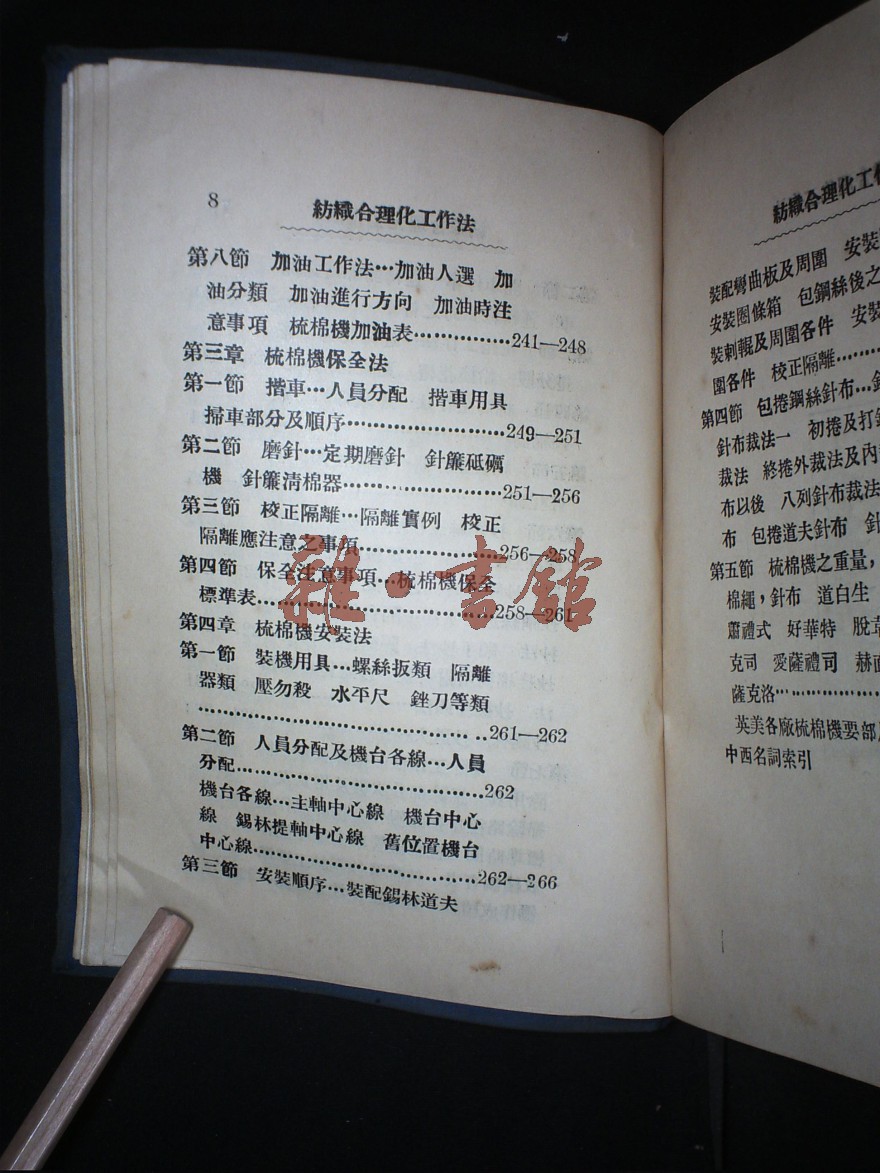 8
紡織合理化工作法
第八節　加油工作法…加油人選　加
油分類　加油進行方向　加油時注
意事項　梳棉機加油表……………241—248
第三章　梳棉機保全法
第一節　揩車…人員分配　揩車用具
掃車部分及順序……………………249—251
第二節　磨針…定期磨針　針簾砥礪
機　針簾清棉器……………………251—256
第三節　校正隔離…隔離實例　校正
隔離應注意之事項…………………256—258
第四節　保全注意事項…梳棉機保全
標準表………………………………258—261
第四章　梳棉機安裝法
第一節　裝機用具…螺絲扳類　隔離
器類　壓勿殺　水平尺　銼刀等類
………………………………………261—262
第二節　人員分配及機台各線…人員
分配……………………………………262
機台各線…主軸中心線　機台中心
線　錫林提軸中心線　舊位置機台
中心線………………………………262—266
第三節　安裝順序…裝配錫林道夫
紡織合理化工作
裝配彎曲板及周圍　安裝
安裝圈條箱　包鋼絲後之
裝刺輥及周圍各件　安裝
圍各件　校正隔離………
第四節　包捲鋼絲針布…
針布裁法一　初捲及打
裁法　終捲外裁法及內
布以後　八列針布裁法
布　包捲道夫針布　針
第五節　梳棉機之重量，
棉繩，針布　道白生
蕭禮式　好華特　脫
克司　愛薩禮司　赫
薩克洛………………
英美各廠梳棉機要部
中西名詞索引
雜·書館